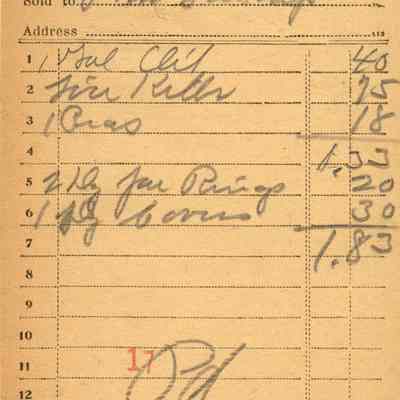 Sold to
Address
1 1 Gal 40
2 75
3 1 18
4 1.33
5 2 Dz Jar Rings 20
6 1 Dz Covers 30
7 1.83
8
9
10
11 17 Pd
12